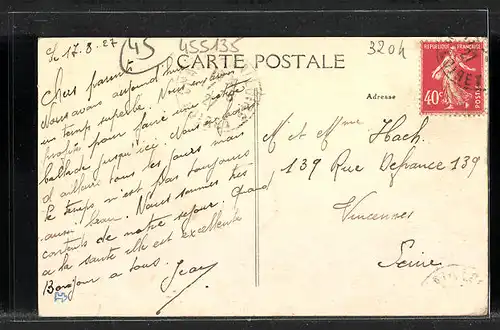 le 17.8.27
45
455135
3204
CARTE POSTALE
RÉPUBLIQUE FRANÇAISE
40c
POSTES
Adresse
Chers parents
Nous avons aujourd'hui
un temps superbe. Nous en avons
profité pour faire une petite
ballade jusqu'ici. Nous
d'ailleurs tous les jours mais
le temps n'est pas toujours
aussi beau. Nous sommes très
contents de notre séjour. Quand
à la santé elle est excellente
Bonjour à tous. Jean
M et Mme Hach.
139 Rue Defrance 139
Vincennes
Seine